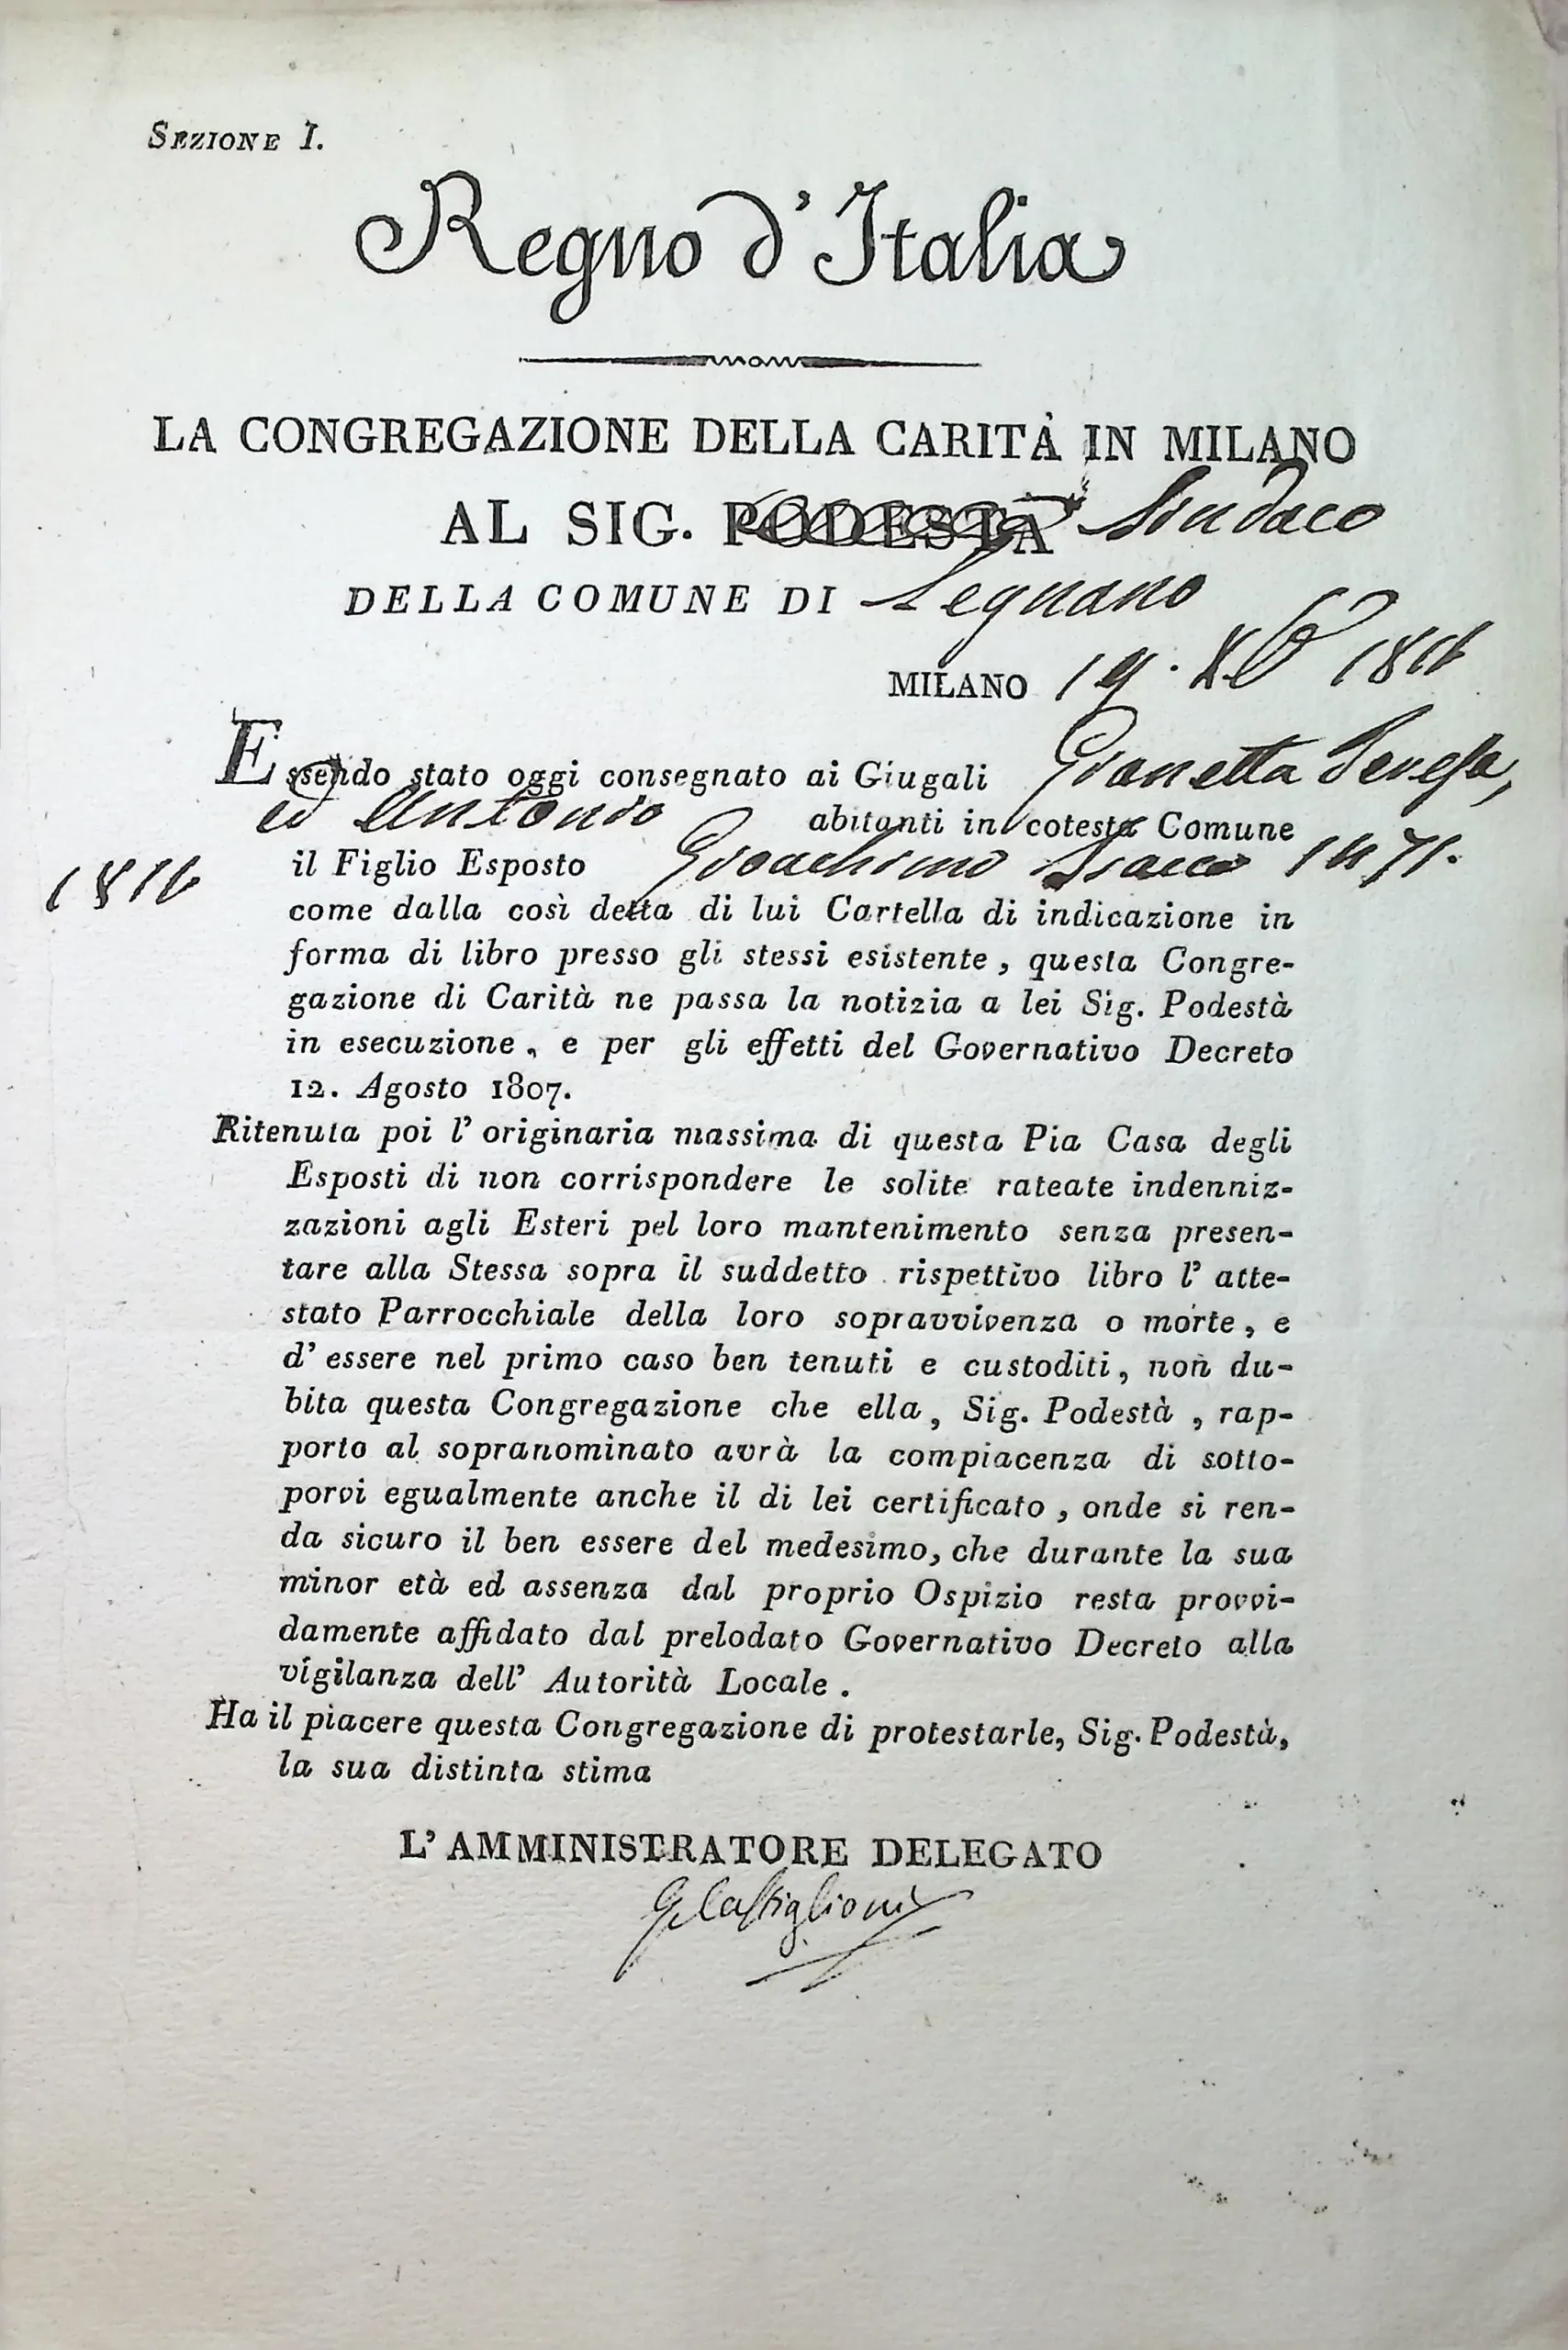 SEZIONE I.
Regno d'Italia
LA CONGREGAZIONE DELLA CARITÀ IN MILANO
AL SIG. PODESTÀ Sindaco
DELLA COMUNE DI Legnano
MILANO 19. Xb
Essendo stato oggi consegnato ai Giugali Gianetta
ed Antonio abitanti in cotesta Comune
il Figlio Esposto Gioachimo 1471.
come dalla così detta di lui Cartella di indicazione in
forma di libro presso gli stessi esistente, questa Congre-
gazione di Carità ne passa la notizia a lei Sig. Podestà
in esecuzione, e per gli effetti del Governativo Decreto
12. Agosto 1807.
Ritenuta poi l' originaria massima di questa Pia Casa degli
Esposti di non corrispondere le solite rateate indenniz-
zazioni agli Esteri pel loro mantenimento senza presen-
tare alla Stessa sopra il suddetto rispettivo libro l' atte-
stato Parrocchiale della loro sopravvivenza o morte, e
d' essere nel primo caso ben tenuti e custoditi, non du-
bita questa Congregazione che ella, Sig. Podestà, rap-
porto al sopranominato avrà la compiacenza di sotto-
porvi egualmente anche il di lei certificato, onde si ren-
da sicuro il ben essere del medesimo, che durante la sua
minor età ed assenza dal proprio Ospizio resta provvi-
damente affidato dal prelodato Governativo Decreto alla
vigilanza dell' Autorità Locale.
Ha il piacere questa Congregazione di protestarle, Sig. Podestà,
la sua distinta stima
L' AMMINISTRATORE DELEGATO
Castiglioni